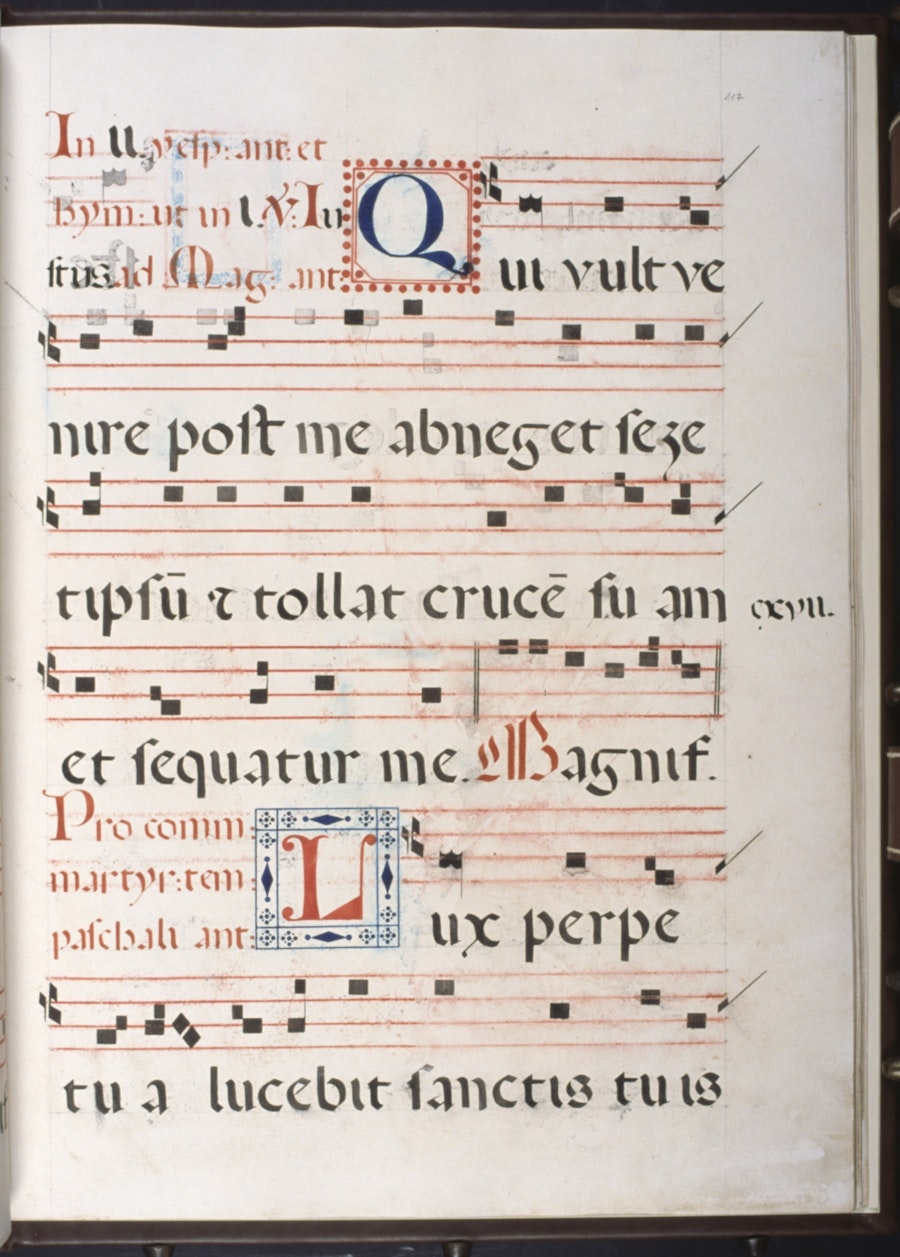 117
In II. vesp: ant: et
hym: ut in I. ℣: Iu
stus ad Mag: ant:
Qui vult ve
nire post me abneget seze
tipsū ⁊ tollat crucē su am
cxvii.
et sequatur me. Magnif.
Pro comm
martyr: tem
paschali ant:
Lux perpe
tu a lucebit sanctis tu is